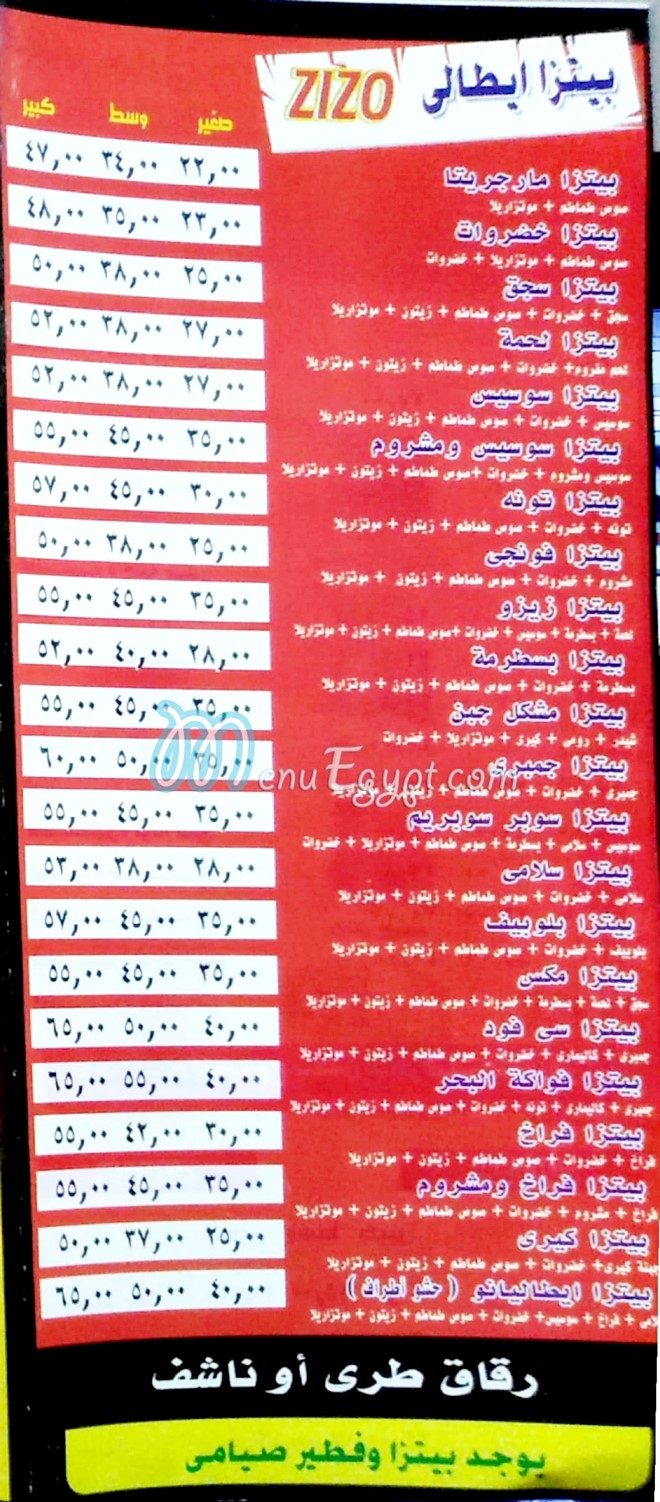 بيتزا ايطالى ZIZO
صغير وسط كبير
بيتزا مارجريتا ٢٢,٠٠ ٣٤,٠٠ ٤٧,٠٠
صوص طماطم + موتزاريلا
بيتزا خضروات ٢٣,٠٠ ٣٥,٠٠ ٤٨,٠٠
صوص طماطم + موتزاريلا + خضروات
بيتزا سجق ٢٥,٠٠ ٣٨,٠٠ ٥٠,٠٠
سجق + خضروات + صوص طماطم + زيتون + موتزاريلا
بيتزا لحمة ٢٧,٠٠ ٣٨,٠٠ ٥٢,٠٠
لحم مفروم+ خضروات + صوص طماطم + زيتون + موتزاريلا
بيتزا سوسيس ٢٧,٠٠ ٣٨,٠٠ ٥٢,٠٠
سوسيس + خضروات + صوص طماطم + زيتون + موتزاريلا
بيتزا سوسيس ومشروم ٣٥,٠٠ ٤٥,٠٠ ٥٥,٠٠
سوسيس ومشروم + خضروات +صوص طماطم + زيتون + موتزاريلا
بيتزا تونه ٣٠,٠٠ ٤٥,٠٠ ٥٧,٠٠
تونه + خضروات + صوص طماطم + زيتون + موتزاريلا
بيتزا فونجى ٢٥,٠٠ ٣٨,٠٠ ٥٠,٠٠
مشروم + خضروات + صوص طماطم + زيتون + موتزاريلا
بيتزا زيزو ٣٥,٠٠ ٤٥,٠٠ ٥٥,٠٠
لحمة + بسطرمة + سوسيس + خضروات +صوص طماطم + زيتون + موتزاريلا
بيتزا بسطرمة ٢٨,٠٠ ٤٠,٠٠ ٥٢,٠٠
بسطرمة + خضروات + صوص طماطم + زيتون + موتزاريلا
بيتزا مشكل جبن ٣٥,٠٠ ٤٥,٠٠ ٥٥,٠٠
شيدر + رومى + كيرى + موتزاريلا + خضروات
بيتزا جمبرى ٣٥,٠٠ ٥٠,٠٠ ٦٠,٠٠
MenuEgypt.com
جمبرى + خضروات + صوص طماطم + زيتون + موتزاريلا
بيتزا سوبر سوبريم ٣٥,٠٠ ٤٥,٠٠ ٥٥,٠٠
سوسيس + سلامى + بسطرمة + صوص طماطم + موتزاريلا + خضروات
بيتزا سلامى ٢٨,٠٠ ٣٨,٠٠ ٥٣,٠٠
سلامى + خضروات + صوص طماطم + زيتون + موتزاريلا
بيتزا بلوبيف ٣٥,٠٠ ٤٥,٠٠ ٥٧,٠٠
بلوبيف + خضروات + صوص طماطم + زيتون + موتزاريلا
بيتزا مكس ٣٥,٠٠ ٤٥,٠٠ ٥٥,٠٠
سجق + لحمة + بسطرمة + خضروات + صوص طماطم + زيتون + موتزاريلا
بيتزا سى فود ٤٠,٠٠ ٥٠,٠٠ ٦٥,٠٠
جمبرى + كاليمارى + خضروات + صوص طماطم + زيتون + موتزاريلا
بيتزا فواكة البحر ٤٠,٠٠ ٥٥,٠٠ ٦٥,٠٠
جمبرى + كاليمارى + تونه + خضروات + صوص طماطم + زيتون + موتزاريلا
بيتزا فراخ ٣٠,٠٠ ٤٢,٠٠ ٥٥,٠٠
فراخ + خضروات + صوص طماطم + زيتون + موتزاريلا
بيتزا فراخ ومشروم ٣٥,٠٠ ٤٥,٠٠ ٥٥,٠٠
فراخ + مشروم + خضروات + صوص طماطم + زيتون + موتزاريلا
بيتزا كيرى ٢٥,٠٠ ٣٧,٠٠ ٥٠,٠٠
جبنة كيرى+ خضروات + صوص طماطم + زيتون + موتزاريلا
بيتزا ايطاليانو ( حشو أطراف ) ٤٠,٠٠ ٥٠,٠٠ ٦٥,٠٠
+ فراخ + سوسيس+ خضروات + صوص طماطم + زيتون + موتزاريلا
رقاق طرى أو ناشف
يوجد بيتزا وفطير صيامى